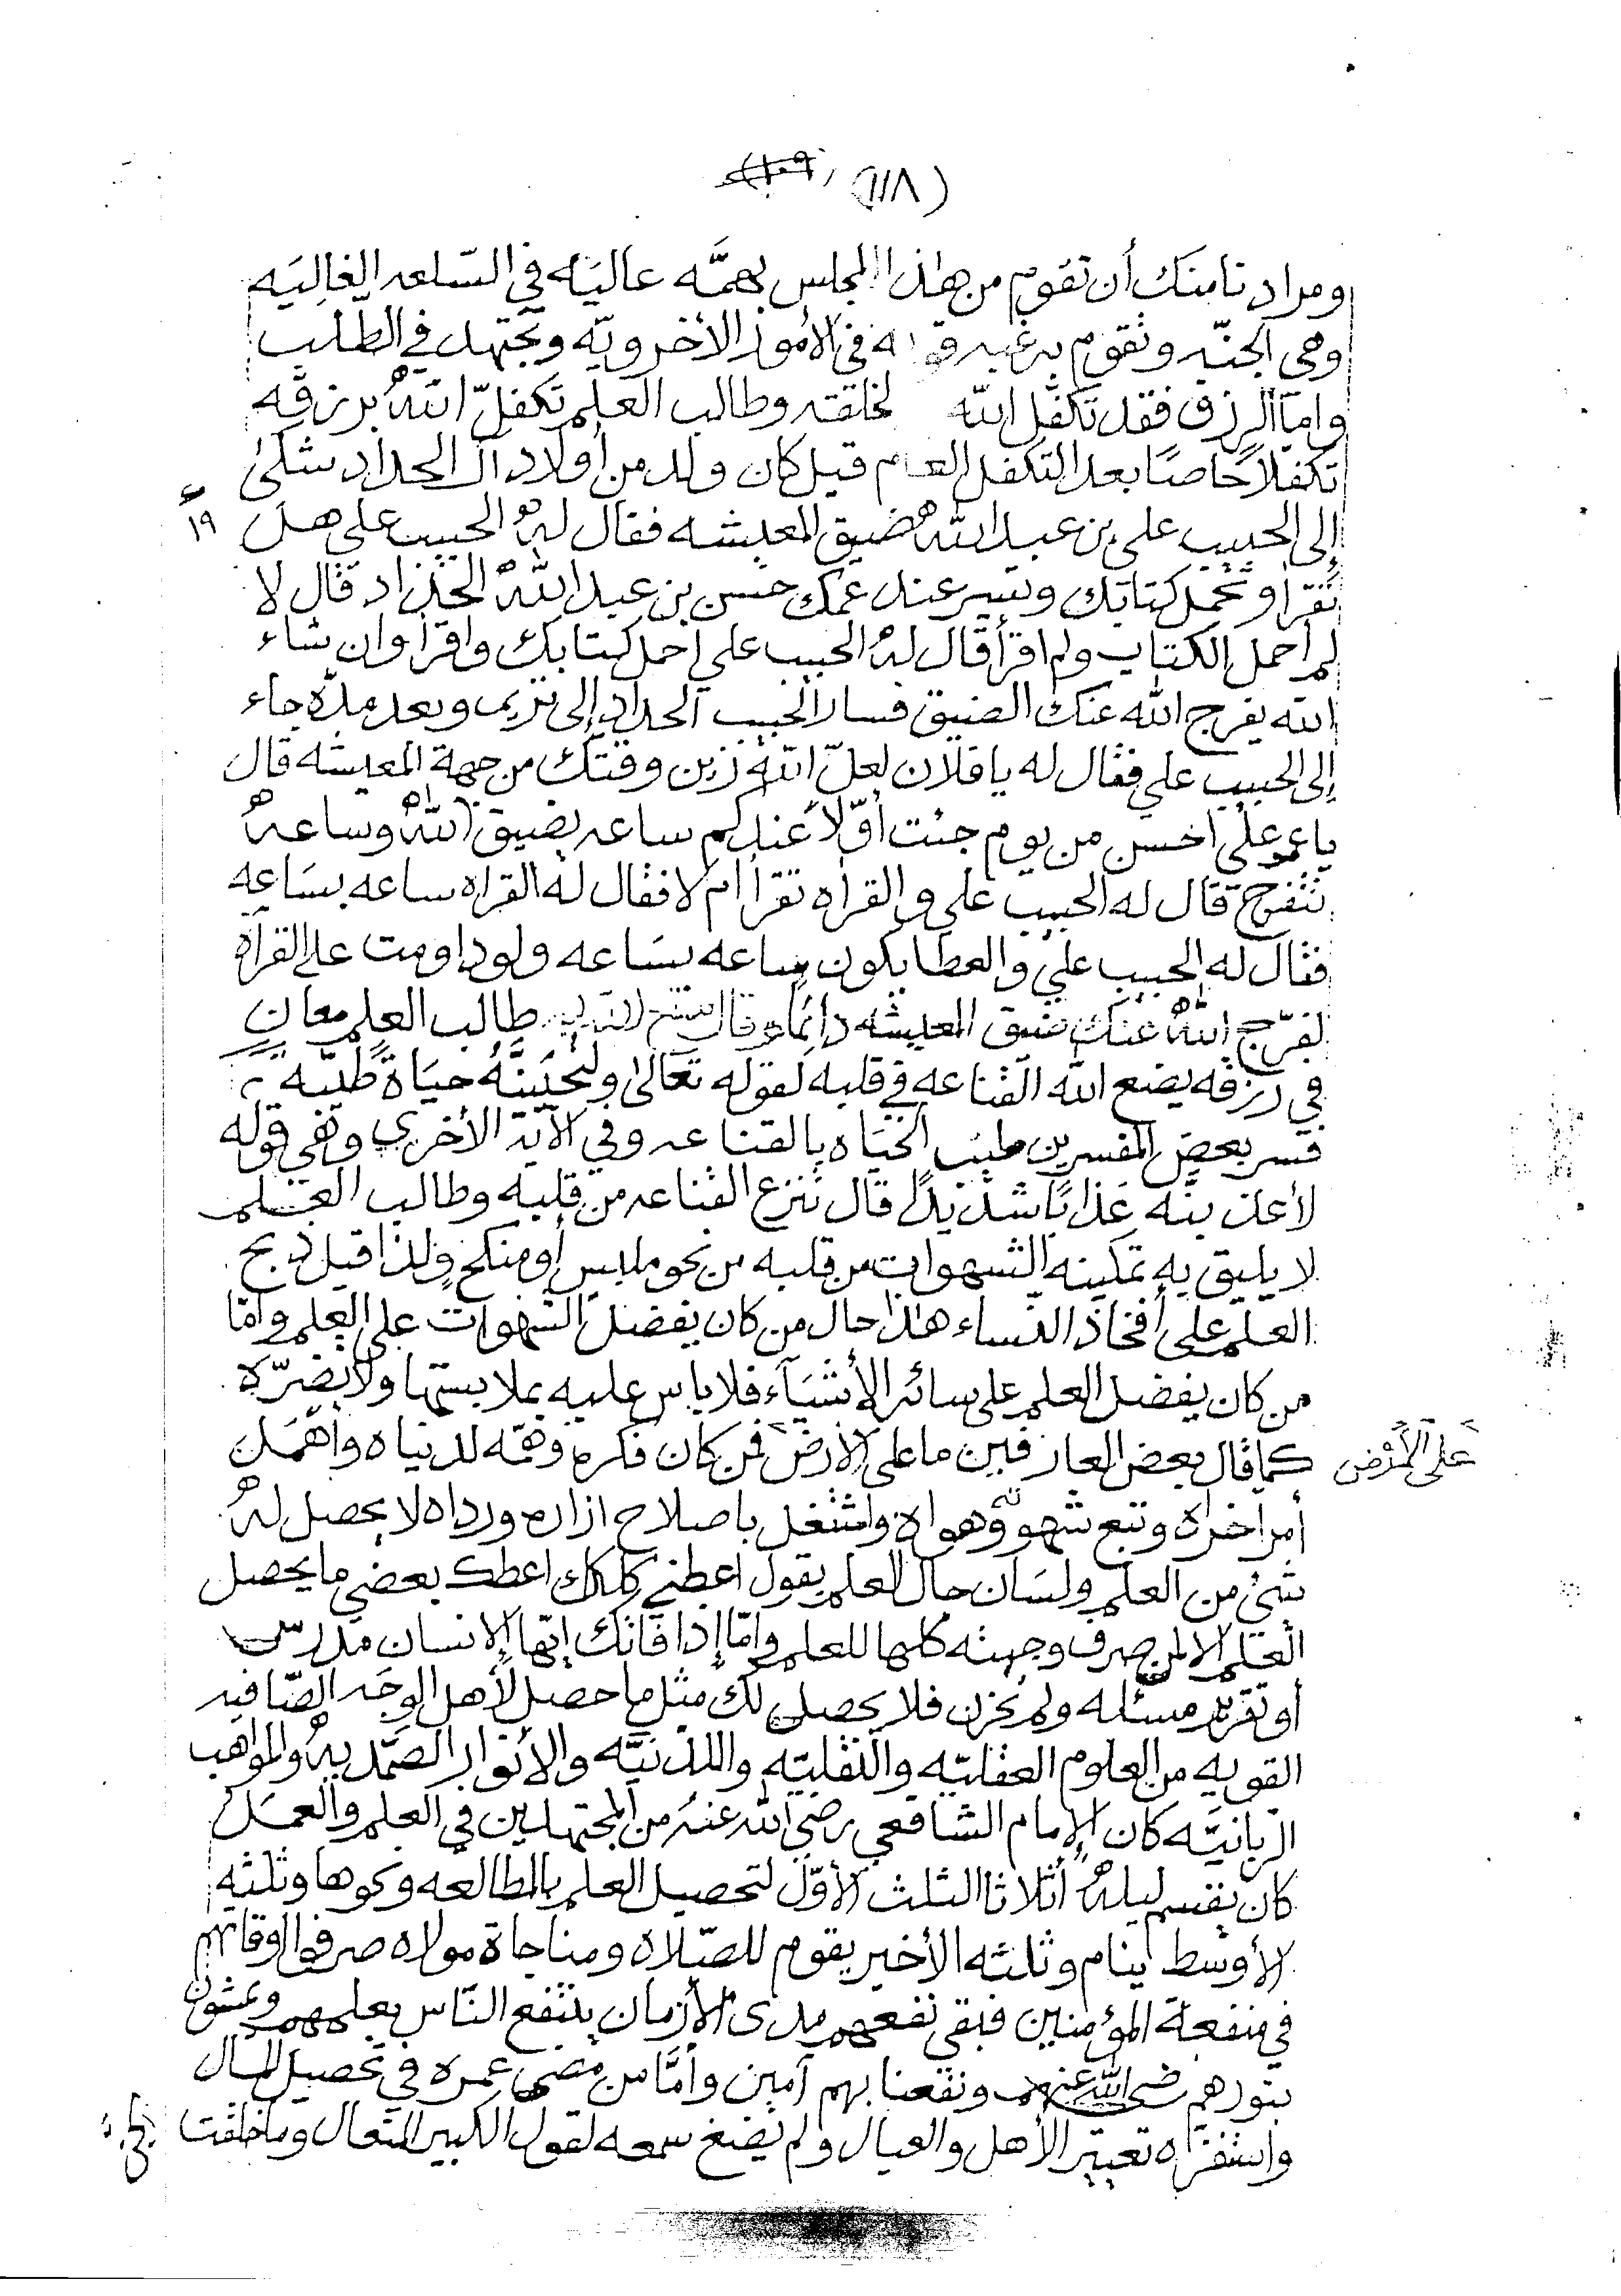 (١١٨)
ومرادنا منك أن تقوم من هاذا المجلس بهمَّه عاليَه في السّلعه الغاليَه
وهي الجنّه وتقوم برغبه في الأمور الأخرويّه وتجتهد في الطلب
وامّا الرزق فقد تكفّل الله لخلقته وطالب العلم تكفّل اللهُ برزقه
تكفلاً خاصًا بعد التكفل العام قيل كان ولد من أولاد آل الحداد شكى
إلى الحبيب علي بن عبد الله ضيق المعيشه فقال لهُ الحبيب علي هل
تقرأ وتحمل كتابك وتسير عند عمك حسن بن عبد اللهُ الحدّاد قال لا
لم أحمل الكتاب ولم اقرأ قال لهُ الحبيب علي احمل كتابك واقرأ وان شاء
الله يفرج الله عنك الضيق فسار الحبيب الحداد إلى تريم وبعد مدّه جاء
إلى الحبيب علي فقال له يا فلان لعلّ اللهُ زين وقتك من جهة المعيشه قال
يا عمو علي احسن من يوم جئت أوّلاً عندكم ساعه بضيق اللهُ وساعهُ
تتفرج قال له الحبيب علي والقراه تقرأ أم لا فقال له القراه ساعه بسَاعه
فقال له الحبيب علي والعطا يكون ساعه بسَاعه ولو داومت على القرآه
لفرّج اللهُ عنك ضيق المعيشه دائمًا وقال طالب العلم معان
في رزقه يضع الله القناعه في قلبه لقوله تعالى ولنحيَينَّهُ حيَاةً طيّبه
فسر بعض المفسرين طيب الحيَاه بالقناعه وفي الآيه الأخرى وهي قوله
لأعذبنّه عَذابًا شديدًا قال ننزع القناعه من قلبه وطالب العلم
لا يليق به تمكينه الشهوات من قلبه من نحو ملبس أو منكح ولذا قيل ذبح
العلم على أفخاذ النساء هذا حال من كان يفضل الشهوات على العلم وامّا
من كان يفضل العلم على سائر الأشيَآء فلا باس عليه بملابستها ولا يضرّه
كما قال بعض العارفين ما على الارض فمن كان فكره وهمّه لدنياه وأهمَل
عَلى الأرْض
أمر اخراه وتبع شهوته وهواه واشتغل باصلاح ازاره ورداه لا يحصل لهُ
شيئ من العلم ولسَان حال العلم يقول اعطني كلك اعطك بعضي ما يحصل
العلم الا لمن صرف وجهته كلها للعلم وامّا إذا فاتك إيّها الإنسان مدرس
أو تقرير مسئله ولم تحزن فلا يحصل لك مثل ما حصل لأهل الوجه الصّافيه
القويه من العلوم العقليّه والنقليّه واللدنيَّه والأنوار الصَّمَديهُ والمواهب
الربانيَّه كان الإمام الشافعي رضي الله عنهُ من المجتهدين في العلم والعمَل
كان يقسم ليلهُ أثلاثا الثلث الأوّل لتحصيل العلم بالمطالعه ونحوها وثلثه
الأوسط ينام وثلثه الأخير يقوم للصّلاه ومناجاة مولاه صرفوا اوقاتهم
في منفعة المؤمنين فبقى نفعهم مدى الأزمان ينتفع النّاس بعلمهم ويمشون
بنورهم رضي الله عنهم ونفعنا بهم آمين وأمَّا من مضى عمره في تحصيل المال
واستفزاه تعيير الأهل والعيال ولم يضغ سمعه لقول الكبير المتعال وما خلقت